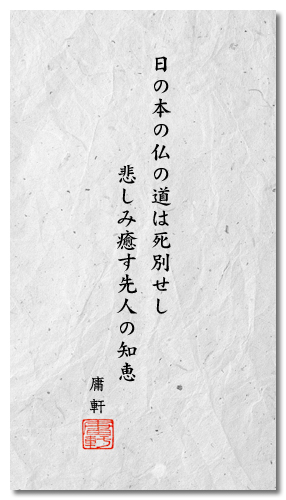 日の本の仏の道は死別せし
悲しみ癒す先人の知恵
庸軒
庸軒